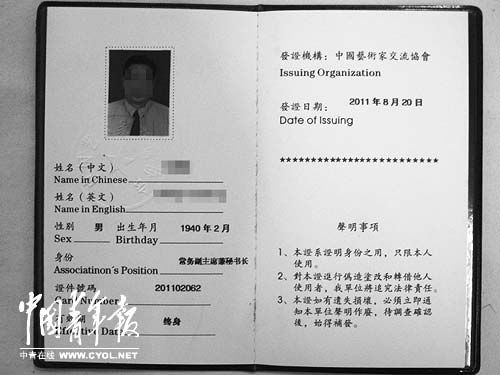 姓名（中文）
Name in Chinese
姓名（英文）
Name in English
性別 男 出生年月 1940年2月
Sex Birthday
身份 常务副主席兼秘书长
Associatinon's Position
證件號碼 201102062
Card Number
有效期 终身
Effective Date
中國青年报
中青在线 WWW.CYOL.NET
發證機構：中國藝術家交流協會
Issuing Organization
發證日期：2011年8月20日
Date of Issuing
*************************
聲明事項
1、本證系證明身份之用，只限本人
使用。
2、對本證進行偽造塗改和轉借他人
使用者，我單位將追究法律責任。
3、本證如有遺失損壞，必須立即通
知本單位聲明作廢，待調查確認
後，始得補發。